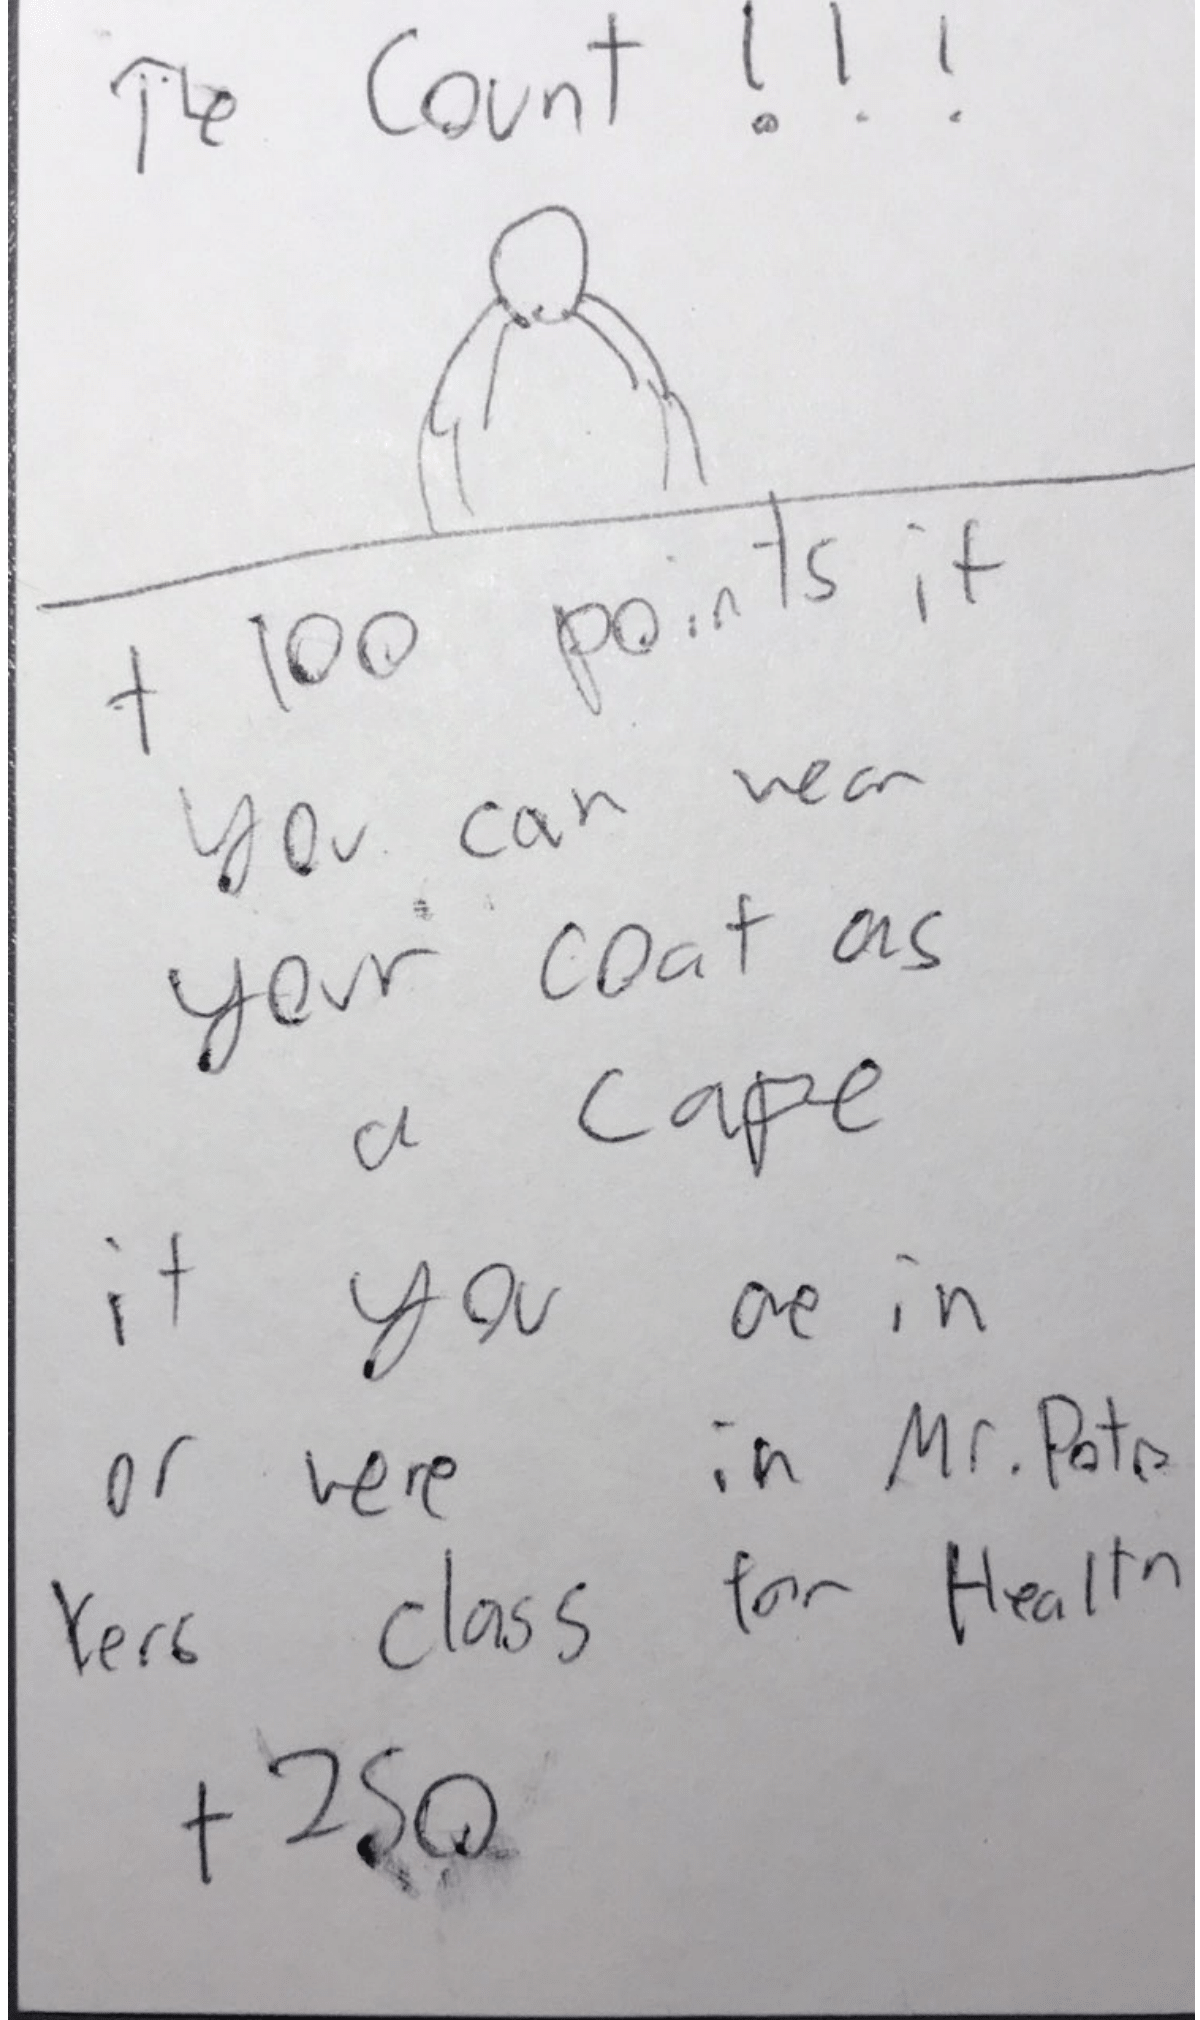 The Count!!!
+ 100 points if
you can wear
your coat as
a cape
if you are in
or were in Mr. Pata
kers class for Health
+250